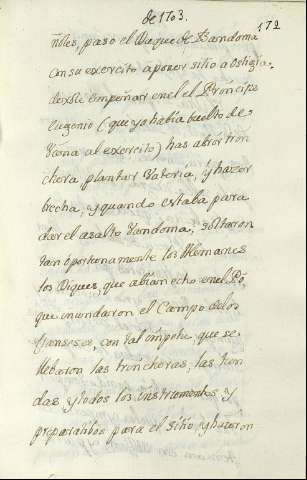 de 1703.
172
ñoles, paso el Duque de Bandoma
con su exercito aponer sitio a Ostiglia.
dexose empeñar en el el Principe
Eugenio (que ya habia buelto de
Viena al exercito) has abrir trin
chera plantar Vateria, y hazer
brecha, y quando estaba para
dar el asalto Vandoma, soltaron
tan oportunamente los Alemanes
los Diques, que abian echo en el Po,
que inundaron el Campo de los
franseses, con tal impetu, que se
llebaron las trincheras, las tien
das y todos los instrumentos y
preparatibos para el sitio y hizieron